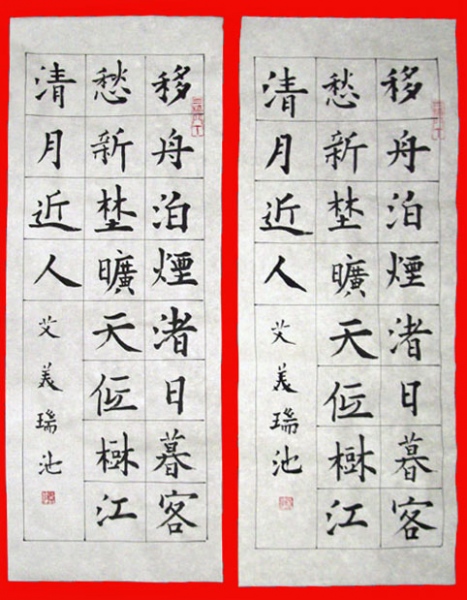 移舟泊煙渚日暮客
愁新埜曠天低樹江
清月近人
艾美瑞池
移舟泊煙渚日暮客
愁新埜曠天低樹江
清月近人
艾美瑞池